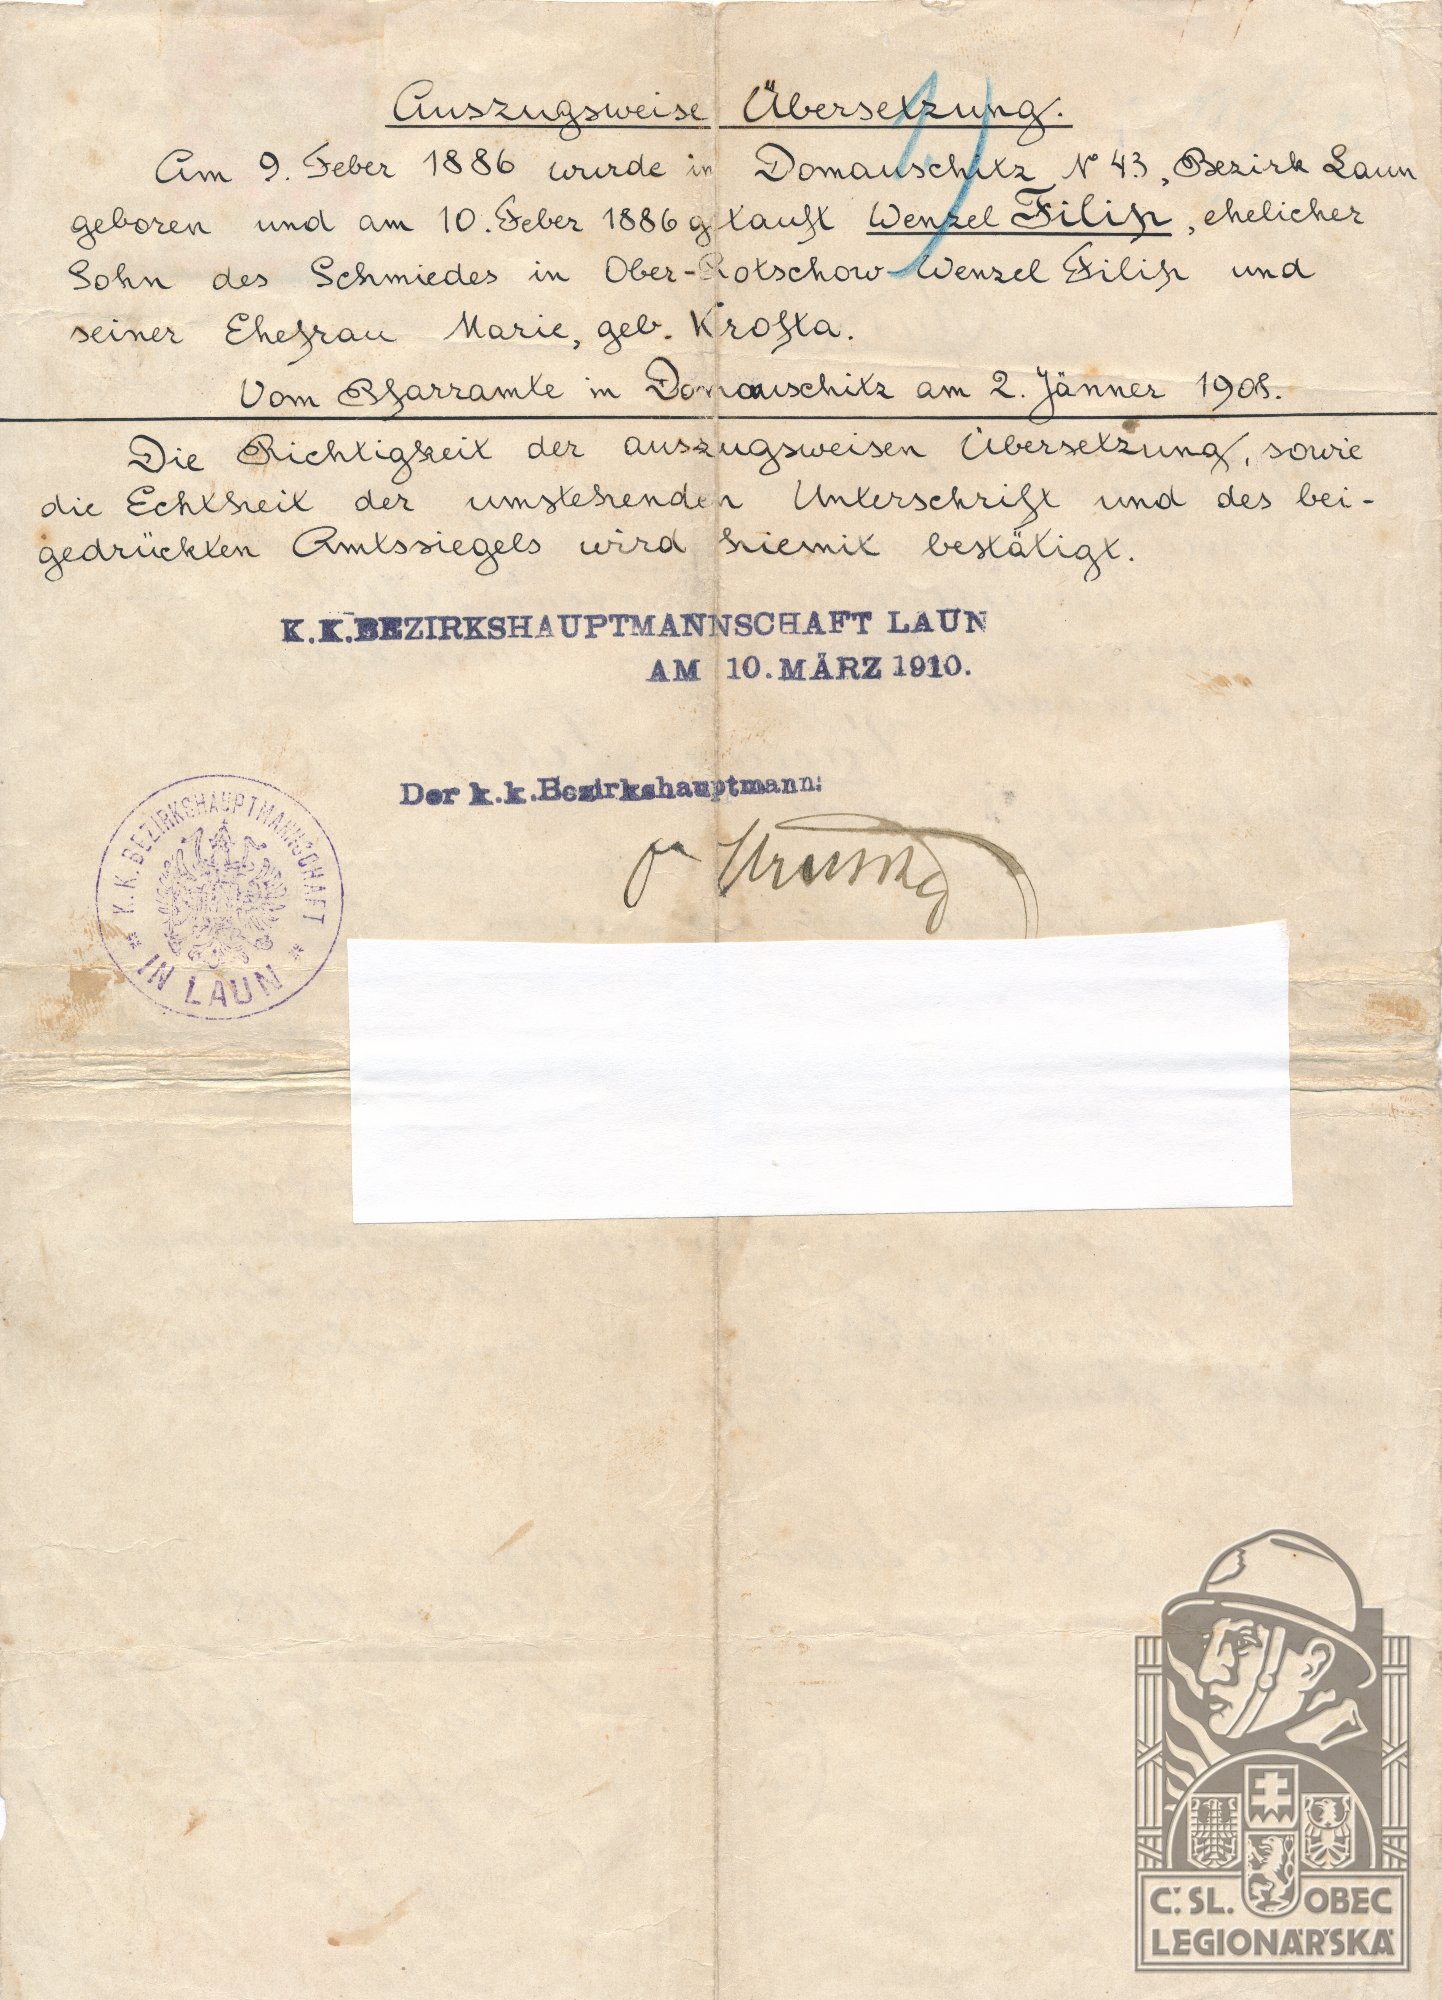 Auszugsweise Übersetzung.
Am 9. Feber 1886 wurde in Domauschitz № 43, Bezirk Laun
geboren und am 10. Feber 1886 getauft Wenzel Filip, ehelicher
Sohn des Schmiedes in Ober-Rotschow Wenzel Filip und
seiner Ehefrau Marie, geb. Krosta.
Vom Pfarramte in Domauschitz am 2. Jänner 1908.
Die Richtigkeit der auszugsweisen Übersetzung, sowie
die Echtheit der umstehenden Unterschrift und des bei-
gedrückten Amtssiegels wird hiemit bestätigt.
K.K.BEZIRKSHAUPTMANNSCHAFT LAUN
AM 10. MÄRZ 1910.
Der k.k.Bezirkshauptmann:
K.K. BEZIRKSHAUPTMANNSCHAFT
* IN LAUN *
Č. SL. OBEC
LEGIONÁŘSKÁ